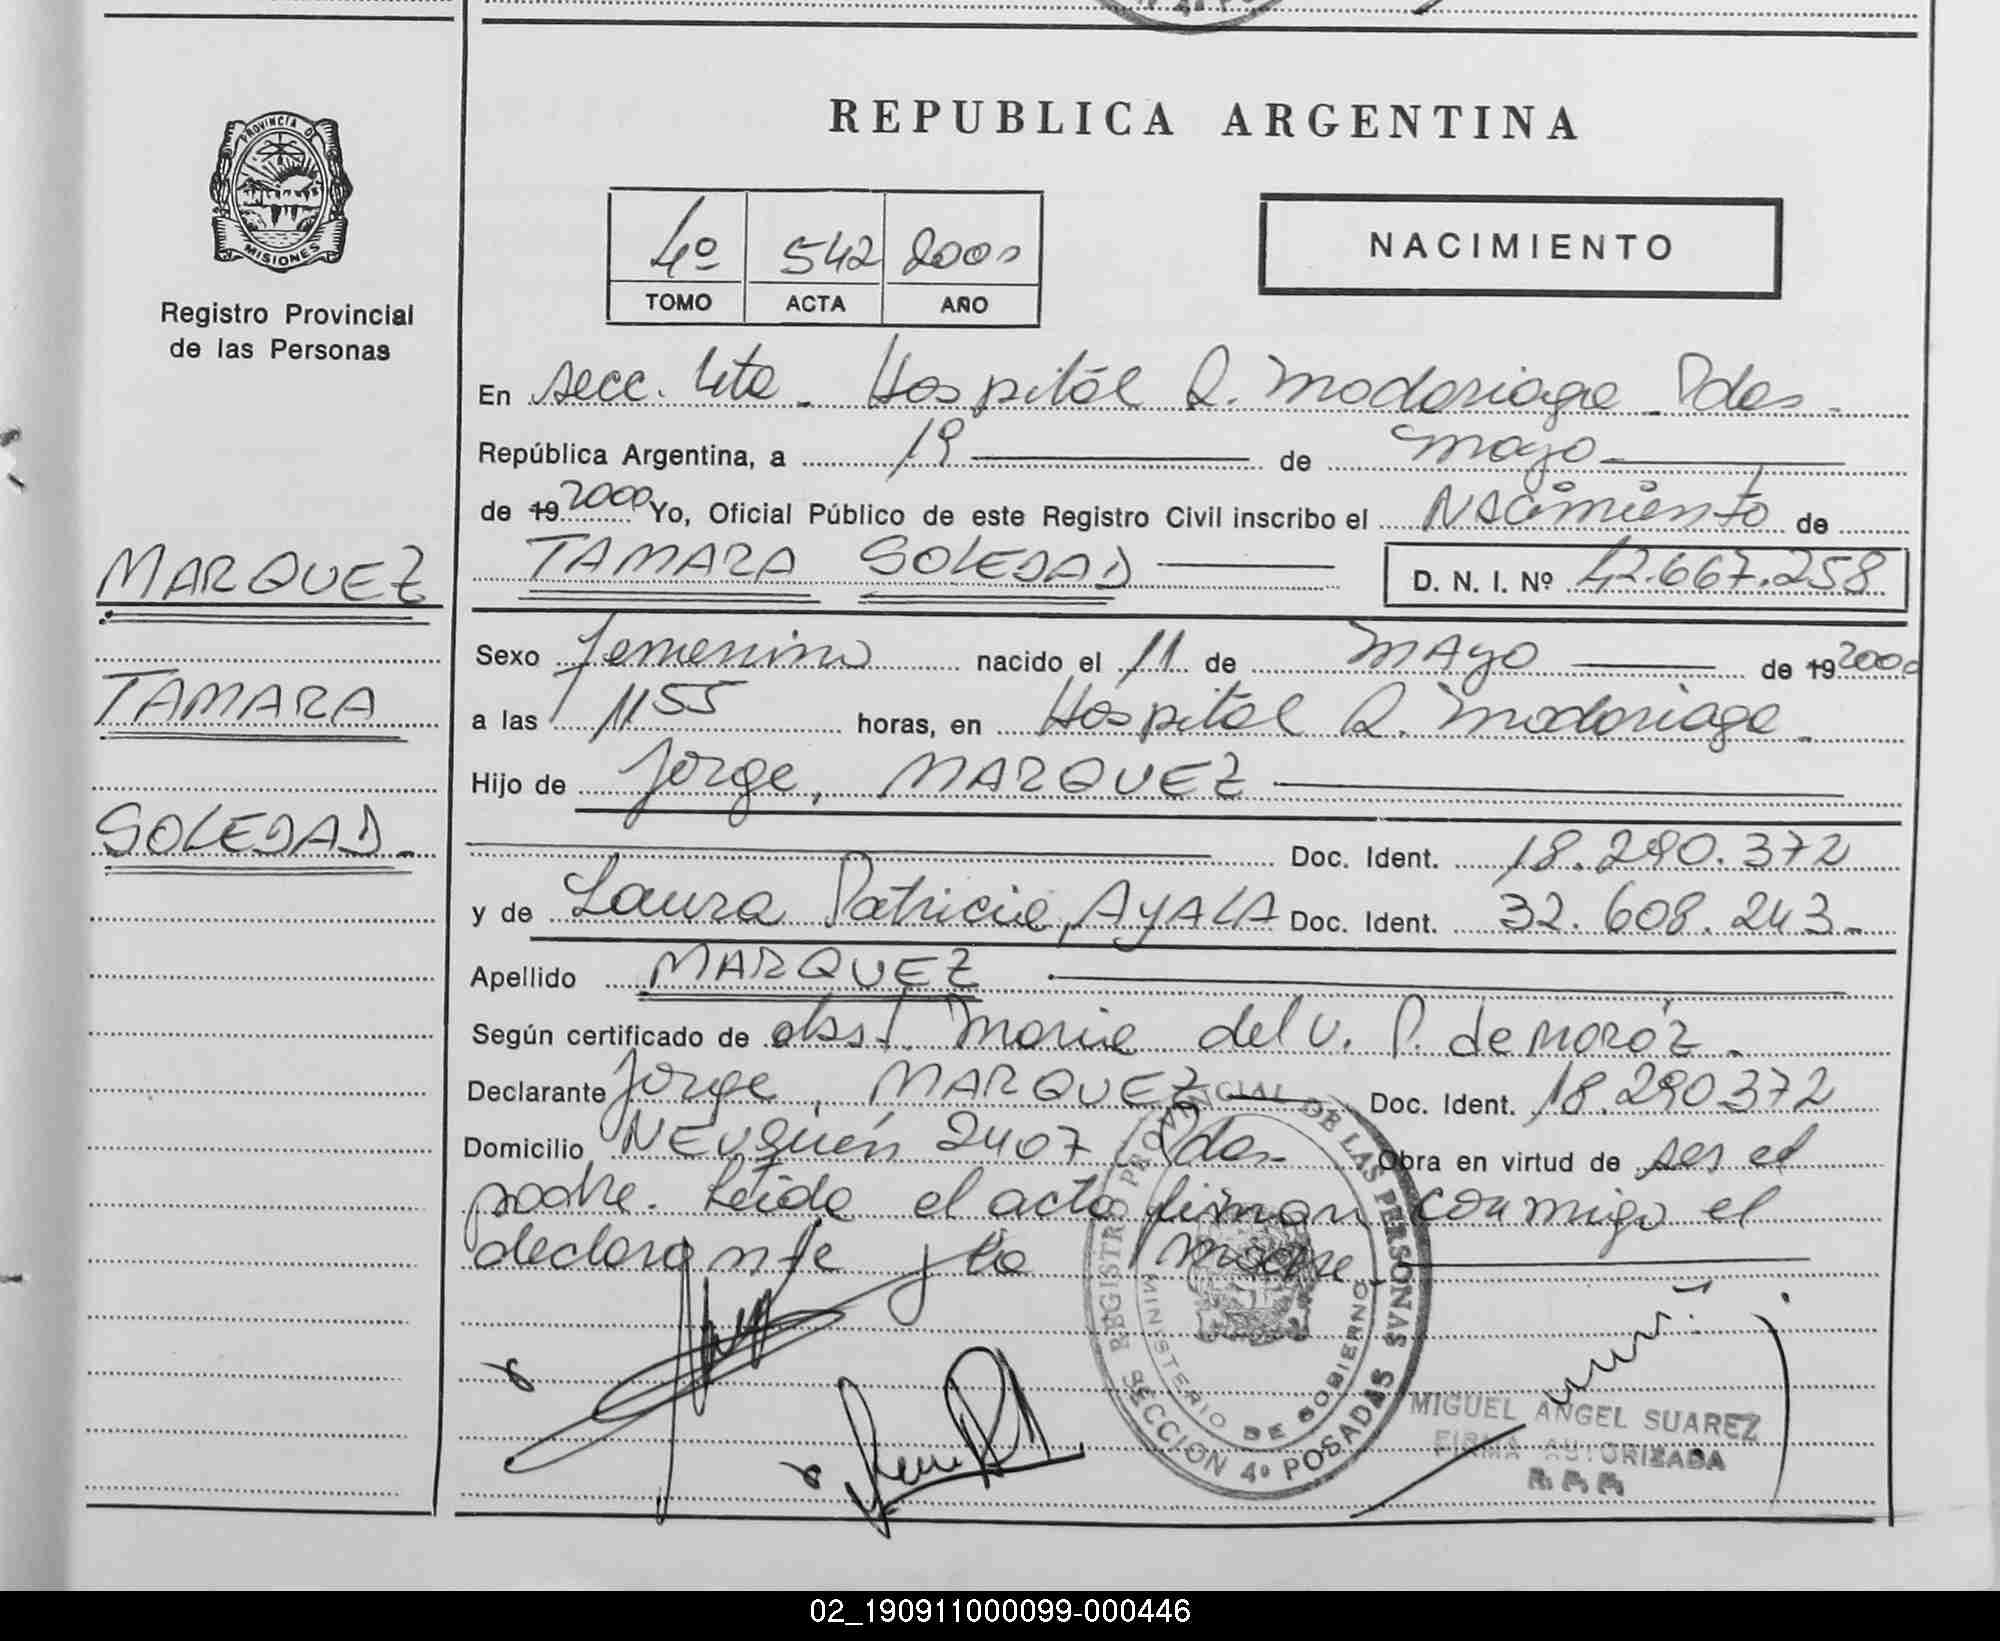 REPUBLICA ARGENTINA
PROVINCIA D
MISIONES
Registro Provincial
de las Personas
4º 542 2000
TOMO ACTA AÑO
NACIMIENTO
En secc. 4ta - Hospital R. Madariaga - Pdas -
República Argentina, a 19 de mayo
de 19 2000 Yo, Oficial Público de este Registro Civil inscribo el Nacimiento de
TAMARA SOLEDAD D. N. I. Nº 42.667.258
MARQUEZ
TAMARA
SOLEDAD -
Sexo femenino nacido el 11 de mayo de 19 2000
a las 1155 horas, en Hospital R. Madariaga -
Hijo de Jorge, MARQUEZ
Doc. Ident. 18.290.372
y de Laura Patricia, AYALA Doc. Ident. 32.608.243 -
Apellido MARQUEZ
Según certificado de obst. Maria del V. P. de Moróz -
Declarante Jorge, MARQUEZ Doc. Ident. 18.290372
Domicilio Neuquén 2407 Pdas - Obra en virtud de ser el
padre. Leida el acta firman conmigo el
declarante y la madre
REGISTRO PROVINCIAL DE LAS PERSONAS
MINISTERIO DE GOBIERNO
SECCION 4ª POSADAS
MIGUEL ANGEL SUAREZ
FIRMA AUTORIZADA
02_190911000099-000446